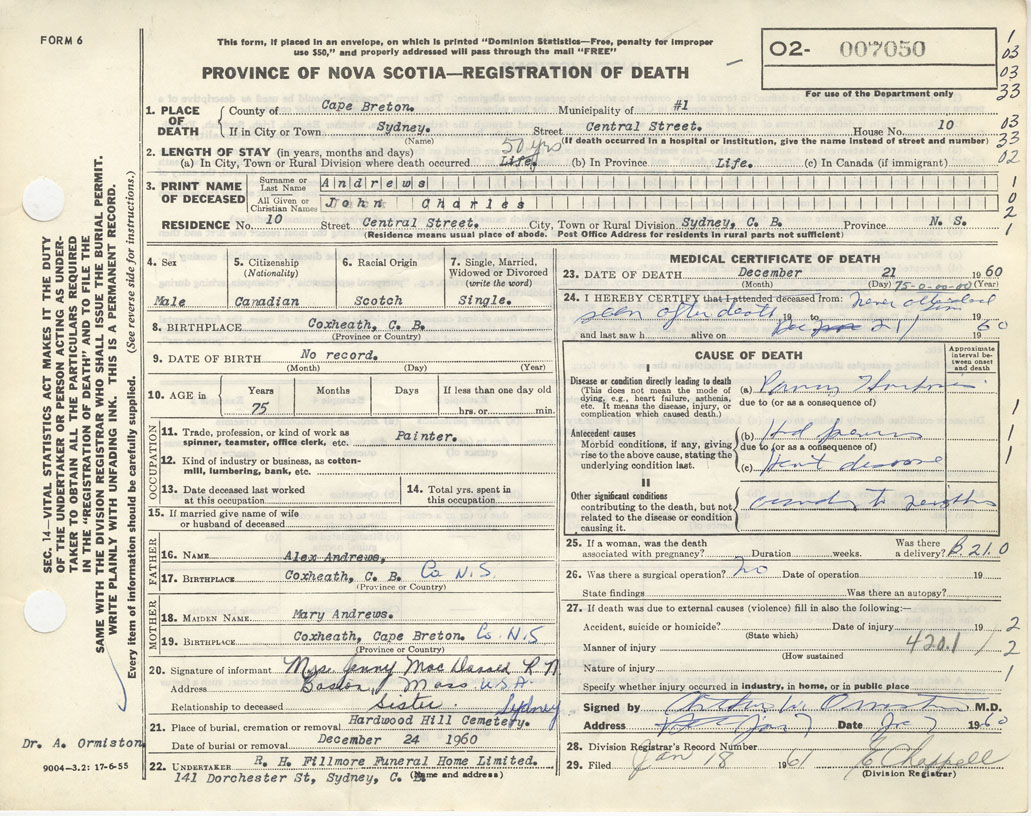 FORM 6
This form, if placed in an envelope, on which is printed "Dominion Statistics—Free, penalty for improper
use $50," and properly addressed will pass through the mail "FREE"
O2- 007050
For use of the Department only
PROVINCE OF NOVA SCOTIA—REGISTRATION OF DEATH
1. PLACE OF DEATH
County of Cape Breton. Municipality of #1
If in City or Town Sydney. Street Central Street. House No. 10
(Name) (If death occurred in a hospital or institution, give the name instead of street and number)
2. LENGTH OF STAY (in years, months and days) 50 yrs
(a) In City, Town or Rural Division where death occurred Life. (b) In Province Life. (c) In Canada (if immigrant)
3. PRINT NAME OF DECEASED
Surname or Last Name Andrews
All Given or Christian Names John Charles
RESIDENCE No. 10 Street Central Street. City, Town or Rural Division Sydney, C. B. Province N. S.
(Residence means usual place of abode. Post Office Address for residents in rural parts not sufficient)
1
03
03
33
03
33
02
1
0
2
1
4. Sex
Male
5. Citizenship
(Nationality)
Canadian
6. Racial Origin
Scotch
7. Single, Married,
Widowed or Divorced
(write the word)
Single.
8. BIRTHPLACE Coxheath, C. B.
(Province or Country)
9. DATE OF BIRTH No record.
(Month) (Day) (Year)
10. AGE in
Years Months Days If less than one day old
75 hrs. or min.
OCCUPATION
11. Trade, profession, or kind of work as
spinner, teamster, office clerk, etc. Painter.
12. Kind of industry or business, as cotton-
mill, lumbering, bank, etc.
13. Date deceased last worked
at this occupation
14. Total yrs. spent in
this occupation
15. If married give name of wife
or husband of deceased
FATHER
16. NAME Alex Andrews,
17. BIRTHPLACE Coxheath, C. B. Co N.S.
(Province or Country)
MOTHER
18. MAIDEN NAME Mary Andrews.
19. BIRTHPLACE Coxheath, Cape Breton. Co. N.S
(Province or Country)
20. Signature of informant Mrs. Jenny Mac R N
Address Boston, Mass U.S.A.
Relationship to deceased Sister. Sydney
21. Place of burial, cremation or removal Hardwood Hill Cemetery.
Date of burial or removal December 24 1960
22. UNDERTAKER R. H. Fillmore Funeral Home Limited.
141 Dorchester St, Sydney, C. B.
(Name and address)
MEDICAL CERTIFICATE OF DEATH
23. DATE OF DEATH December 21 1960
(Month) (Day) 75-0-00-00 (Year)
24. I HEREBY CERTIFY that I attended deceased from: Never attended
seen after death 19 to 19
and last saw h alive on Dec 21 1960
CAUSE OF DEATH
Approximate interval between onset and death
I
Disease or condition directly leading to death
(This does not mean the mode of
dying, e.g., heart failure, asthenia,
etc. It means the disease, injury, or
complication which caused death.)
(a)
due to (or as a consequence of)
Antecedent causes
Morbid conditions, if any, giving
rise to the above cause, stating the
underlying condition last.
(b) Had
due to (or as a consequence of)
(c) Heart disease
II
Other significant conditions
contributing to the death, but not
related to the disease or condition
causing it.
1
1
1
25. If a woman, was the death
associated with pregnancy? Duration weeks. Was there
a delivery? B. 21.0
26. Was there a surgical operation? no Date of operation 19
State findings Was there an autopsy?
27. If death was due to external causes (violence) fill in also the following:—
Accident, suicide or homicide? Date of injury 19 2
(State which)
Manner of injury 420.1 2
(How sustained
Nature of injury 1
Specify whether injury occurred in industry, in home, or in public place
Signed by Arthur W. Ormiston M.D.
Address Date 1960
28. Division Registrar's Record Number
29. Filed Jan 18 1961 E Chappell
(Division Registrar)
SEC. 14—VITAL STATISTICS ACT MAKES IT THE DUTY
OF THE UNDERTAKER OR PERSON ACTING AS UNDER-
TAKER TO OBTAIN ALL THE PARTICULARS REQUIRED
IN THE "REGISTRATION OF DEATH" AND TO FILE THE
SAME WITH THE DIVISION REGISTRAR WHO SHALL ISSUE THE BURIAL PERMIT.
WRITE PLAINLY WITH UNFADING INK. THIS IS A PERMANENT RECORD.
Every item of information should be carefully supplied. (See reverse side for instructions.)
Dr. A. Ormiston
9004—3.2: 17-6-55